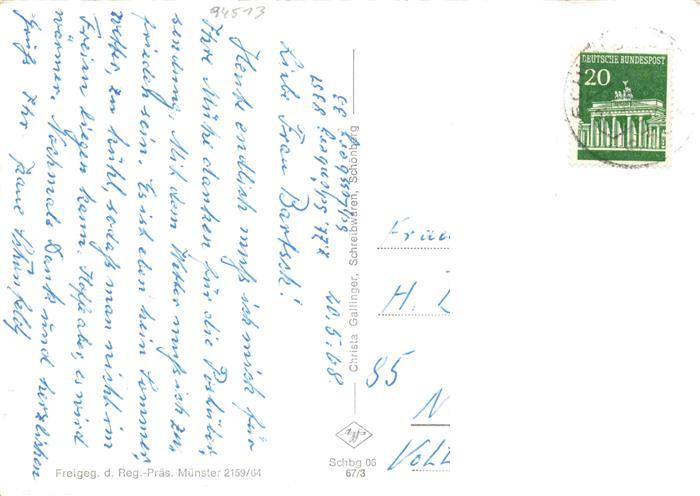 94513
DEUTSCHE BUNDESPOST
20
z.Zt. Schönberg
20.5.68.
Liebe Frau Bartsch!
Heute endlich muß ich mich für
Ihre Mühe danken für die Postüber-
sendung. Mit dem Wetter muß ich zu-
frieden sein. Es ist eben kein Sommer-
wetter, zu kühl, sodaß man nicht im
Freien liegen kann. Hoffe aber, es wird
wärmer. Nochmals Dank und herzlichen
Gruß Ihr
Christa Gallinger, Schreibwaren, Schönberg
Schbg 06
67/3
Freigeg. d. Reg.-Präs. Münster 2159/64
H.
85